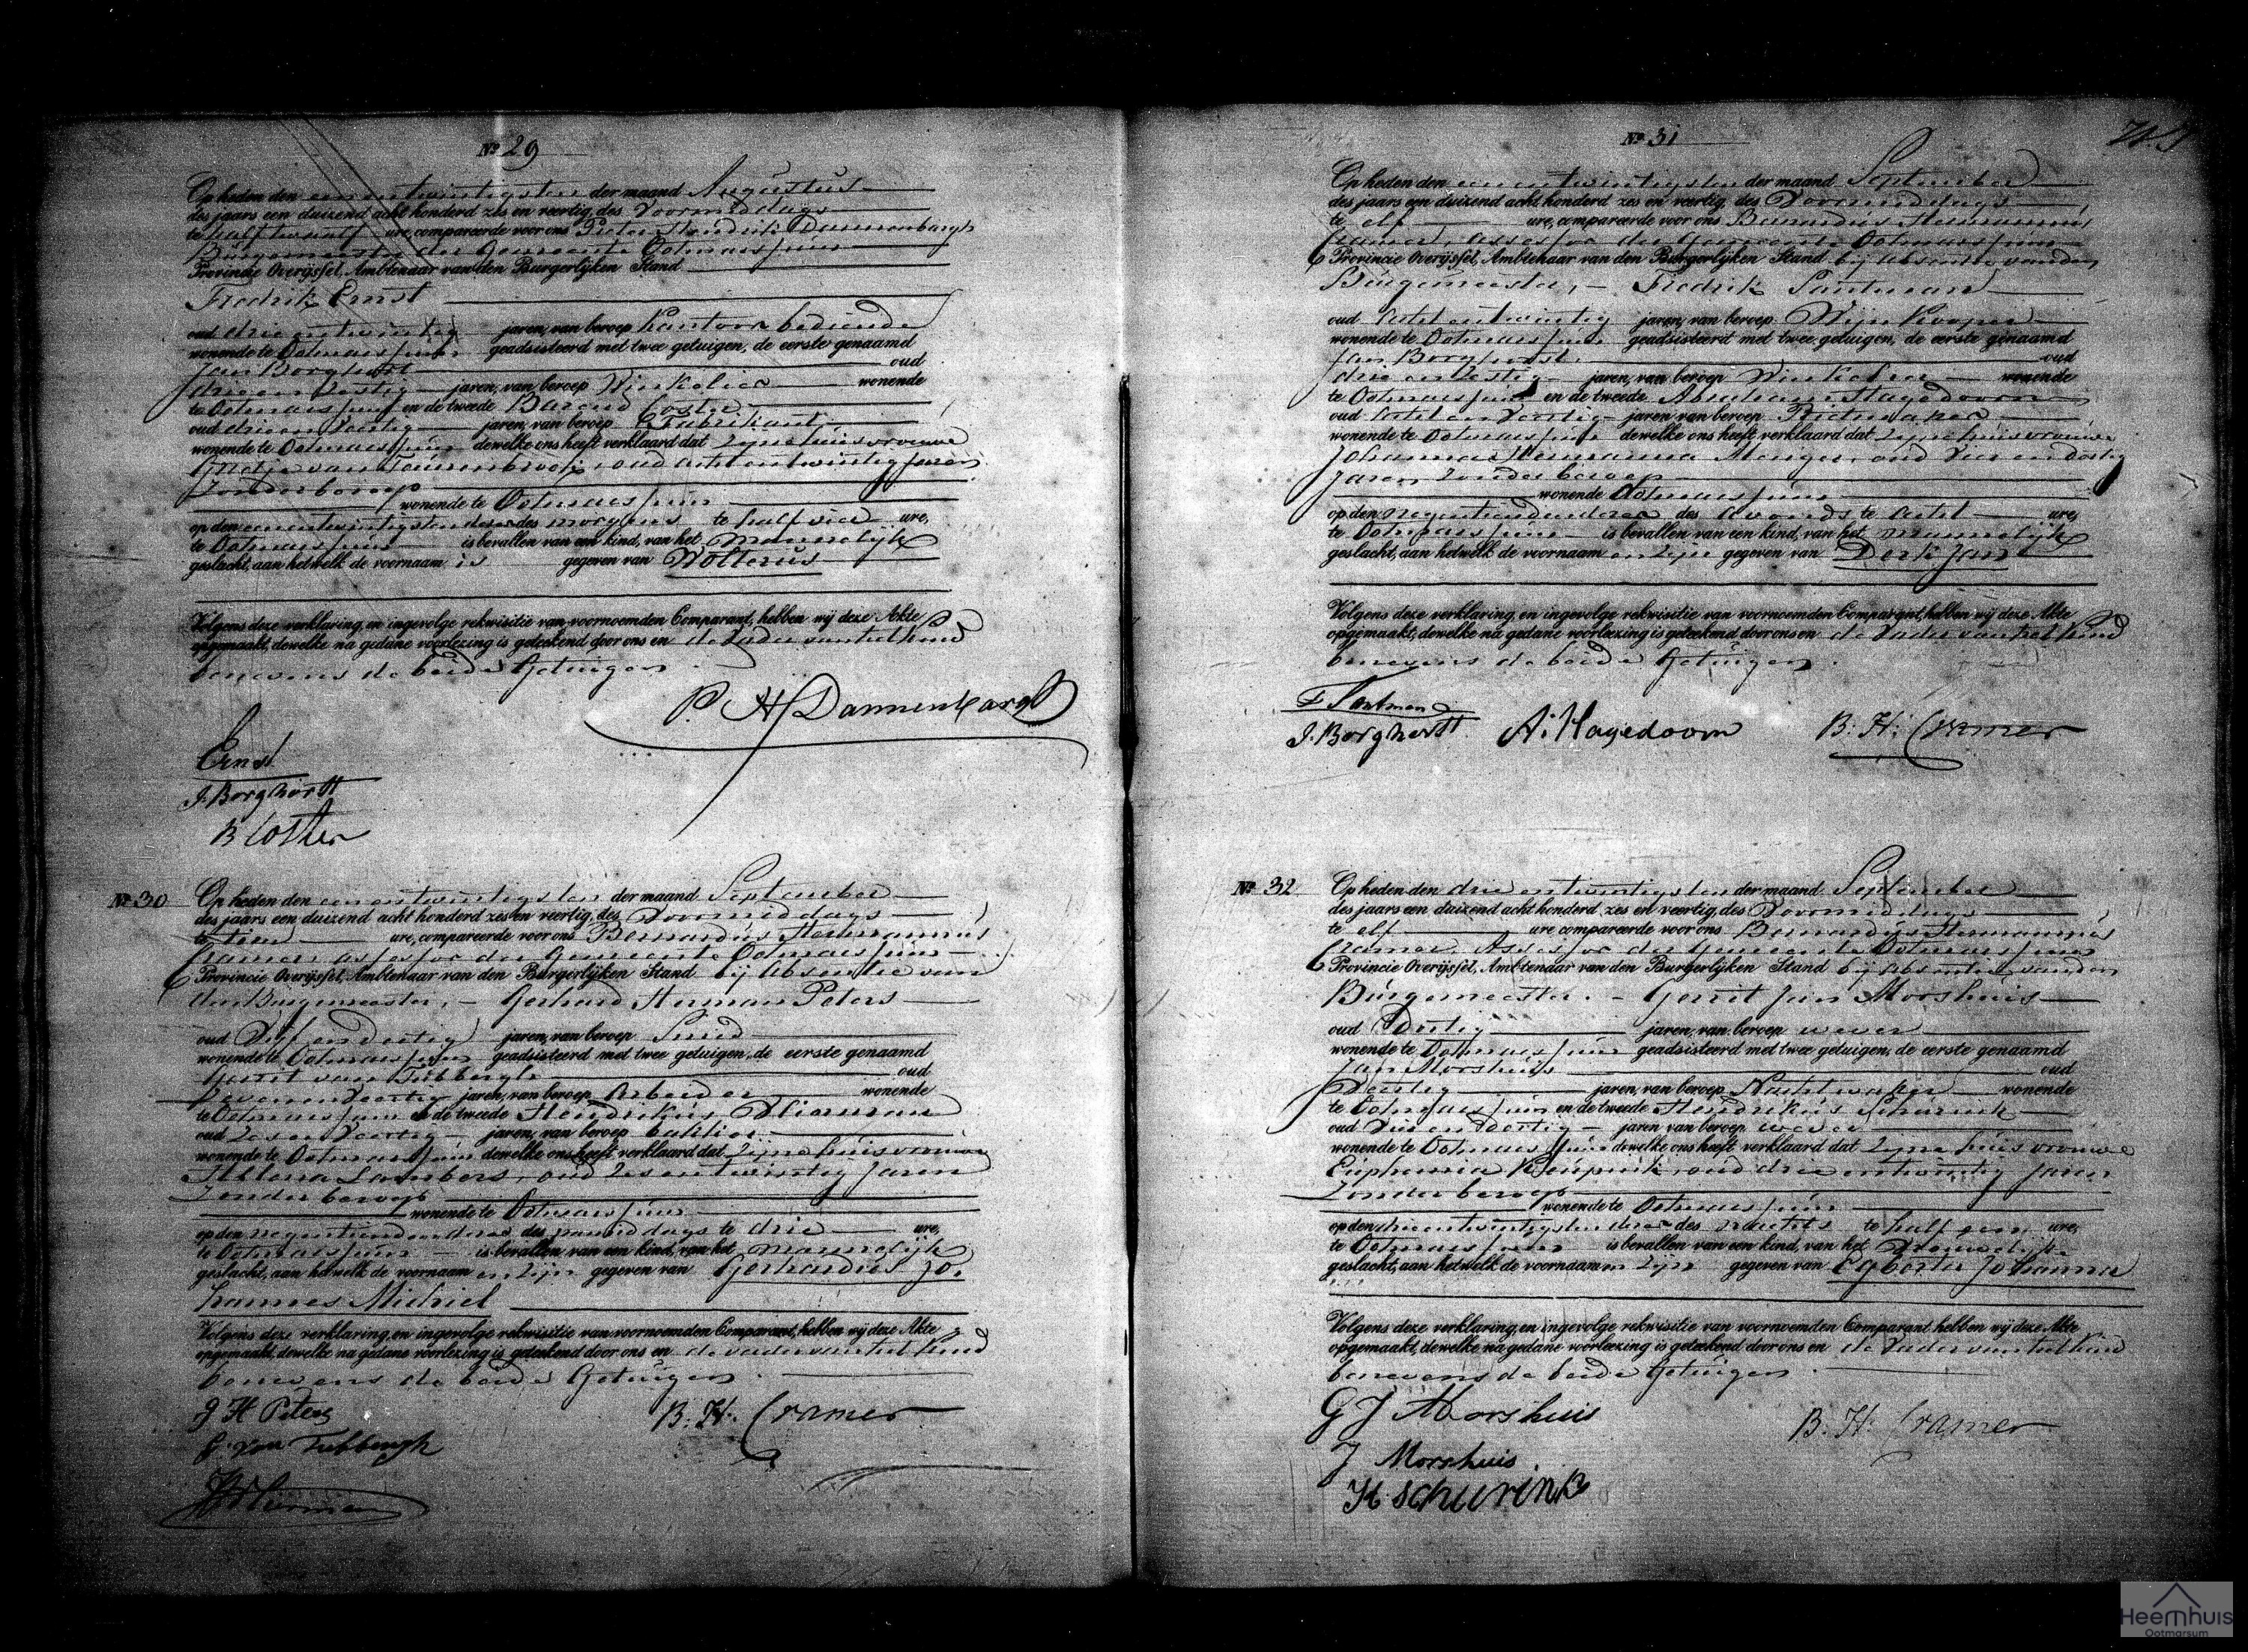 № 29
Op heden den een entwintigsten der maand Augustus
des jaars een duizend acht honderd zes en veertig, des Voormiddags
te half twaalf ure, compareerde voor ons Pieter Hendrik Dannenbargh
Burgemeester der Gemeente Ootmarssum
Provincie Overijssel, Ambtenaar van den Burgerlijken Stand
Fredrik Ernst
oud drie entwintig jaren, van beroep Kantoor bediende
wonende te Ootmarssum geadsisteerd met twee getuigen, de eerste genaamd
Jan Borghorst oud
drie en zestig jaren, van beroep Winkelier wonende
te Ootmarssum en de tweede Barend Coster
oud drie en veertig jaren, van beroep Fabrikant
wonende te Ootmarssum dewelke ons heeft verklaard dat zijne huisvrouwe
van oud acht entwintig Jaren
Zonder beroep
wonende te Ootmarssum
op den eenentwintigsten dezer des morgens te half vier ure,
te Ootmarssum is bevallen van een kind, van het Mannelijk
geslacht, aan hetwelk de voornaam is gegeven van Wolterus
Volgens deze verklaring, en ingevolge rekwisitie van voornoemden Comparant, hebben wij deze Akte
opgemaakt, dewelke na gedane voorlezing is geteekend door ons en de Vader van het Kind
benevens de beide Getuigen
P. H Dannenbargh
Ernst
J. Borghorst
B Coster
№ 30
Op heden den eenentwintigsten der maand September
des jaars een duizend acht honderd zes en veertig, des Voormiddags
te tien ure, compareerde voor ons Bernardus Hermannus
Cramer assessor der Gemeente Ootmarssum
Provincie Overijssel, Ambtenaar van den Burgerlijken Stand bij absentie van
den Burgemeester, – Gerhard Herman Peters
oud Vijf en dertig jaren, van beroep Smid
wonende te Ootmarssum geadsisteerd met twee getuigen, de eerste genaamd
Gerrit van Tubbergh oud
Zeven en Veertig jaren, van beroep Arbeider wonende
te Ootmarssum en de tweede Hendrikus
oud Zes en Veertig jaren, van beroep
wonende te Ootmarssum dewelke ons heeft verklaard dat zijne huisvrouwe
Helena Lambers, oud Zes entwintig Jaren
Zonder beroep
wonende te Ootmarssum
op den negentienden dezer des namiddags te drie ure,
te Ootmarssum is bevallen van een kind, van het mannelijk
geslacht, aan hetwelk de voornaam en zijn gegeven van Gerhardus Jo-
hannes Michiel
Volgens deze verklaring, en ingevolge rekwisitie van voornoemden Comparant, hebben wij deze Akte
opgemaakt, dewelke na gedane voorlezing is geteekend door ons en de vader van het Kind
benevens de beide Getuigen
G H Peters
B. H. Cramer
G. van Tubbergh
№ 31
Op heden den een entwintigsten der maand September
des jaars een duizend acht honderd zes en veertig, des Voormiddags
te elf ure, compareerde voor ons Bernardus Hermannus
Cramer, Assessor der Gemeente Ootmarssum
Provincie Overijssel, Ambtenaar van den Burgerlijken Stand bij absentie van den
Burgemeester, – Fredrik Santman
oud Acht entwintig jaren, van beroep Wijn Kooper
wonende te Ootmarssum geadsisteerd met twee getuigen, de eerste genaamd
Jan Borghorst oud
drie en zestig jaren, van beroep Winkelier wonende
te Ootmarssum en de tweede Abraham Hagedoorn
oud Acht en Veertig jaren, van beroep
wonende te Ootmarssum dewelke ons heeft verklaard dat zijne huisvrouwe
Johanna Hermanna Menger, oud Vier en dertig
Jaren zonder beroep
wonende Ootmarssum
op den negentienden dezer des Avonds te Acht ure,
te Ootmarssum is bevallen van een kind, van het mannelijk
geslacht, aan hetwelk de voornaam en zijn gegeven van Derk Jan
Volgens deze verklaring, en ingevolge rekwisitie van voornoemden Comparant, hebben wij deze Akte
opgemaakt, dewelke na gedane voorlezing is geteekend door ons en de Vader van het Kind
benevens de beide Getuigen.
F Santman
J. Borghorst A. Hagedoorn B. H. Cramer
№ 32
Op heden den drie entwintigsten der maand September
des jaars een duizend acht honderd zes en veertig, des Voormiddags
te elf ure compareerde voor ons Bernardus Hermannus
Cramer, Assessor der Gemeente Ootmarssum
Provincie Overijssel, Ambtenaar van den Burgerlijken Stand bij absentie van den
Burgemeester. – Gerrit Jan Morshuis
oud Dertig jaren, van beroep wever
wonende te Ootmarssum geadsisteerd met twee getuigen, de eerste genaamd
Jan Morshuis oud
jaren, van beroep Nachtwaker wonende
te Ootmarssum en de tweede Hendrikus Schurink
oud Vier en Dertig jaren van beroep wever
wonende te Ootmarssum dewelke ons heeft verklaard dat zijne huisvrouwe
Euphemia oud drie entwintig Jaren
Zonder beroep
wonende te Ootmarssum
op den drieentwintigsten dezer des nachts te half een ure,
te Ootmarssum is bevallen van een kind, van het Vrouwelijk
geslacht, aan hetwelk de voornaam en zijn gegeven van Egberta Johanna
Volgens deze verklaring, en ingevolge rekwisitie van voornoemden Comparant hebben wij deze Akte
opgemaakt, dewelke na gedane voorlezing is geteekend door ons en de Vader van het Kind
benevens de beide Getuigen
G J Morshuis
B. H. Cramer
J Morshuis
H schurink
Heemhuis
Ootmarsum